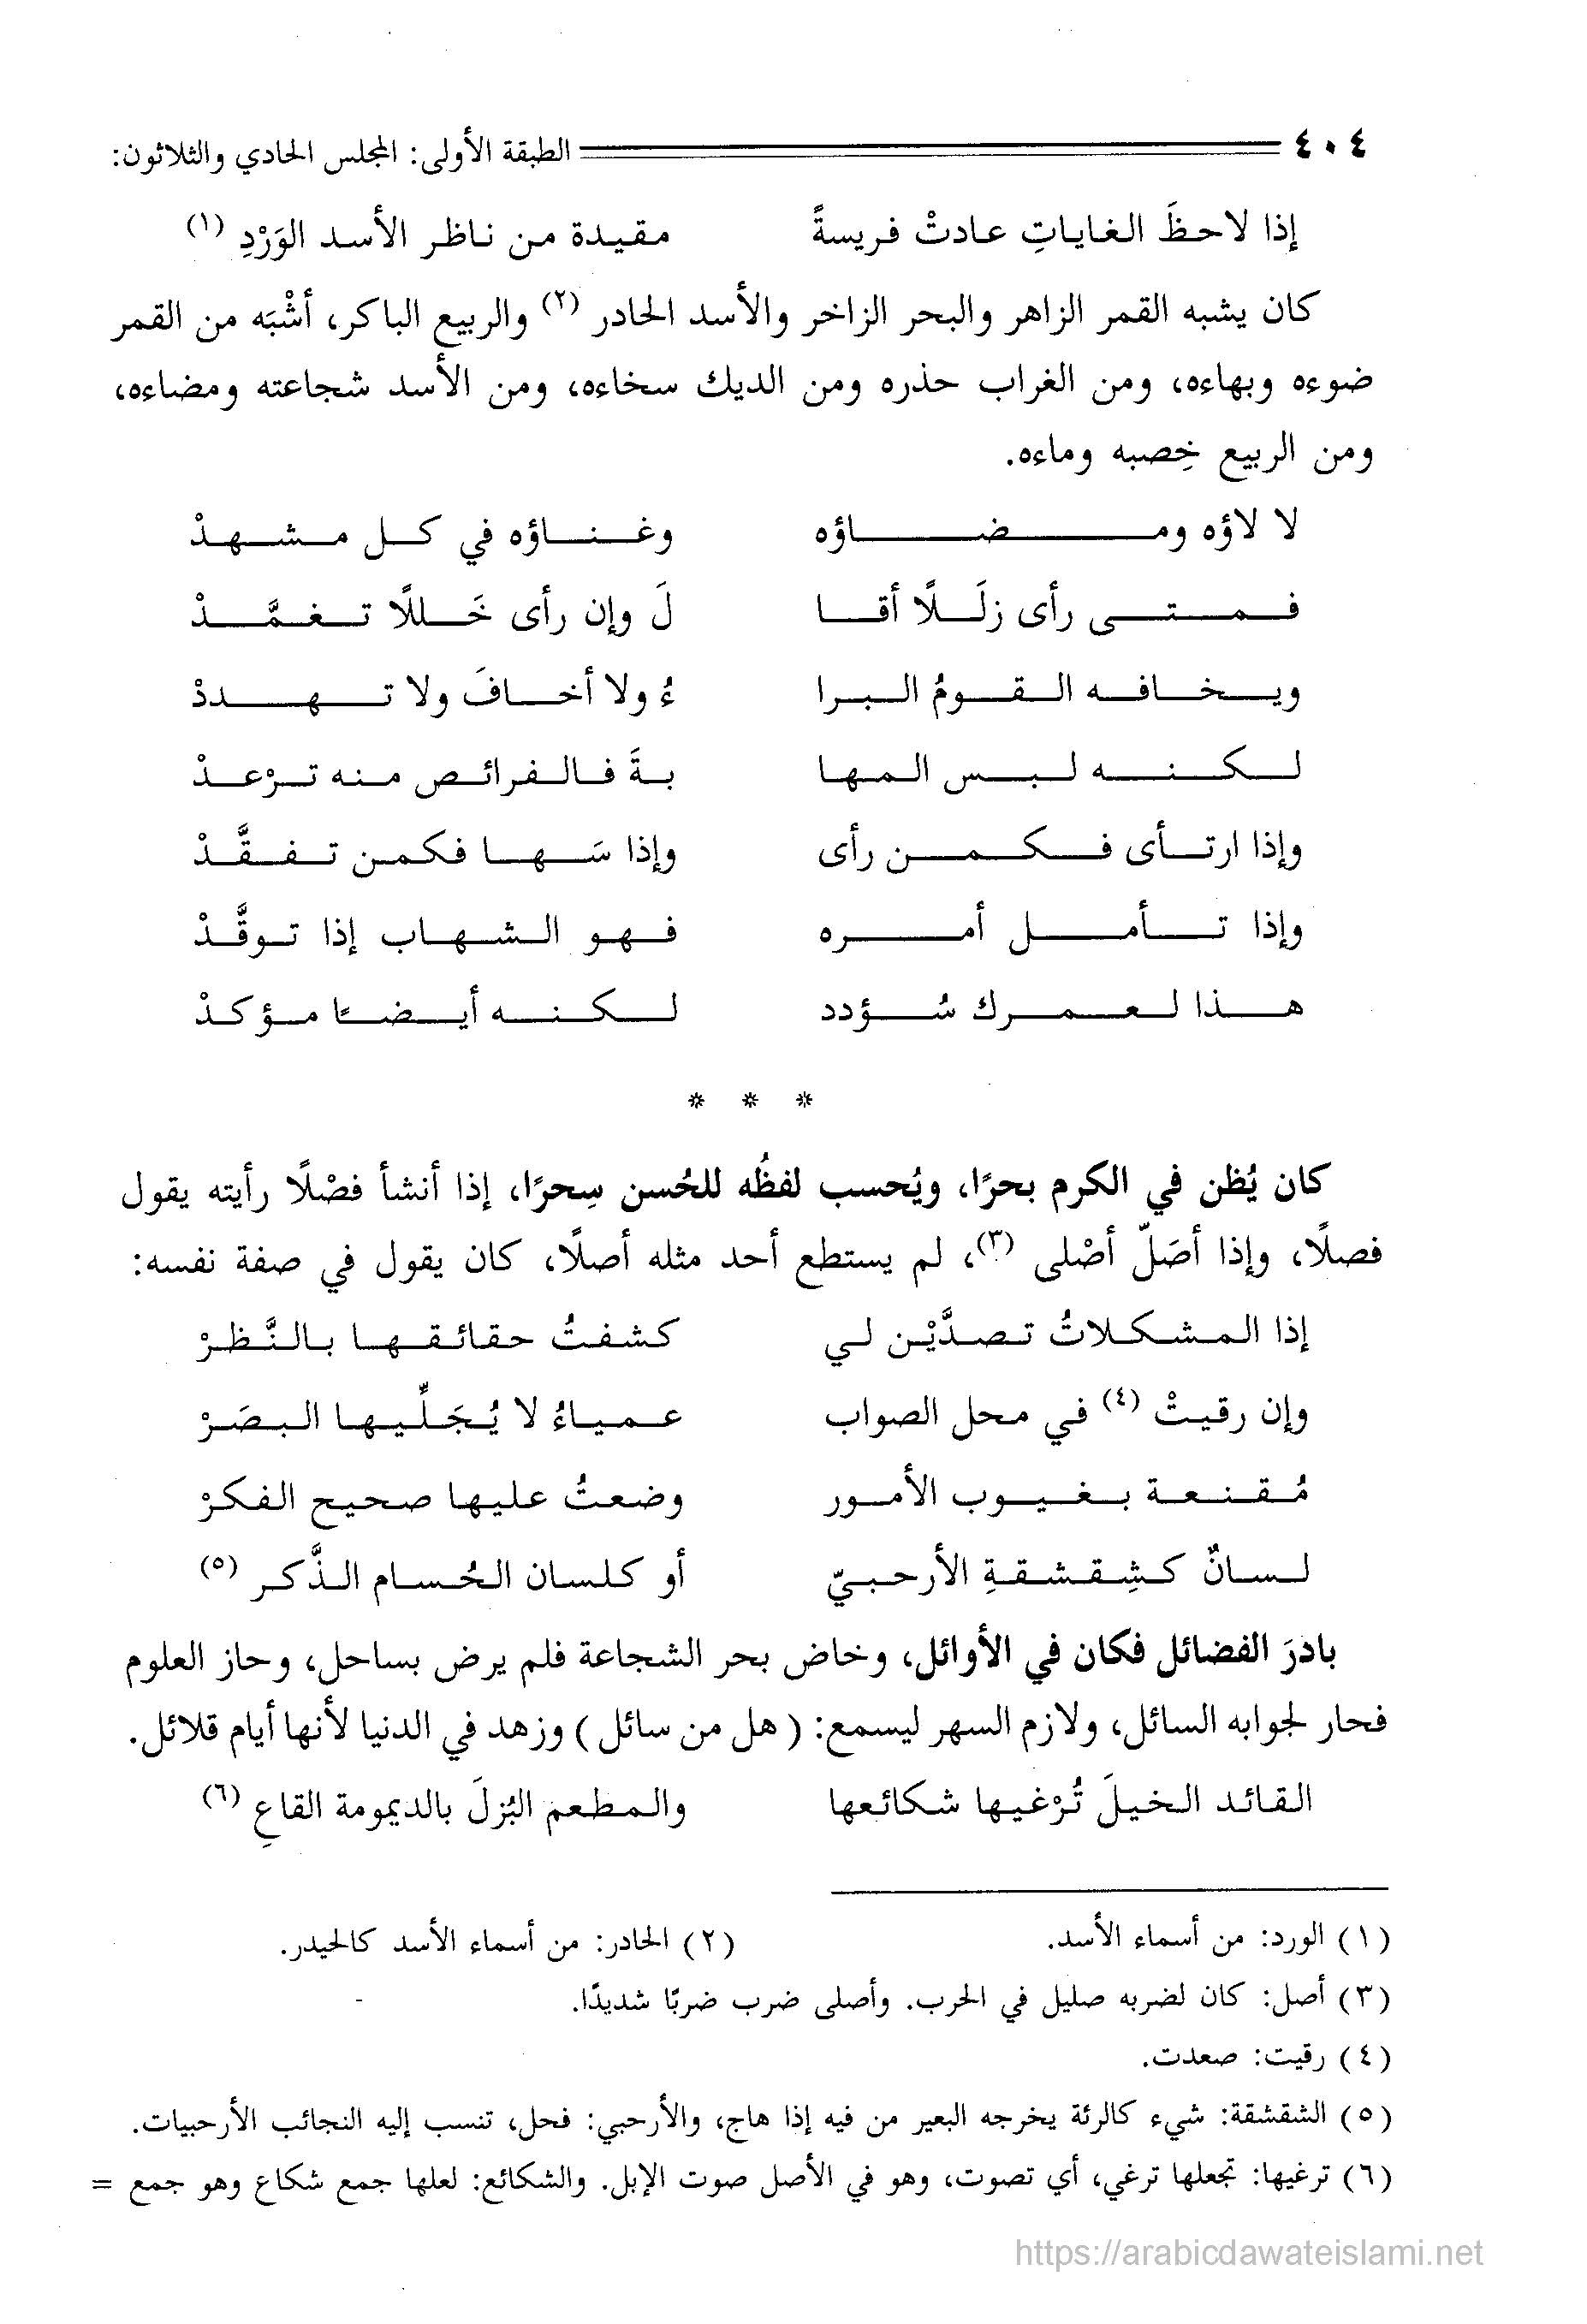 ٤٠٤ الطبقة الأولى: المجلس الحادي والثلاثون:
إذا لاحظَ الغاياتِ عادتْ فريسةً مقيدة من ناظر الأسد الوَرْدِ (١)
كان يشبه القمر الزاهر والبحر الزاخر والأسد الحادر (٢) والربيع الباكر، أشْبَه من القمر
ضوءه وبهاءه، ومن الغراب حذره ومن الديك سخاءه، ومن الأسد شجاعته ومضاءه،
ومن الربيع خِصبه وماءه.
لا لاؤه ومضاؤه وغناؤه في كل مشهدْ
فمتى رأى زلَلًا أقا لَ وإن رأى خَللًا تغمَّدْ
ويخافه القومُ البرا ءُ ولا أخافَ ولا تهددْ
لكنه لبس المها بةَ فالفرائص منه ترْعدْ
وإذا ارتأى فكمن رأى وإذا سَها فكمن تفقَّدْ
وإذا تأمل أمره فهو الشهاب إذا توقَّدْ
هذا لعمرك سُؤدد لكنه أيضًا مؤكدْ
* * *
كان يُظن في الكرم بحرًا، ويُحسب لفظُه للحُسن سِحرًا، إذا أنشأ فصْلًا رأيته يقول
فصلًا، وإذا أصَلّ أصْلى (٣)، لم يستطع أحد مثله أصلًا، كان يقول في صفة نفسه:
إذا المشكلاتُ تصدَّيْن لي كشفتُ حقائقها بالنَّظرْ
وإن رقيتْ (٤) في محل الصواب عمياءُ لا يُجَلِّيها البصَرْ
مُقنعة بغيوب الأمور وضعتُ عليها صحيح الفكرْ
لسانٌ كشِقشقةِ الأرحبيّ أو كلسان الحُسام الذَّكر (٥)
بادرَ الفضائل فكان في الأوائل، وخاض بحر الشجاعة فلم يرض بساحل، وحاز العلوم
فحار لجوابه السائل، ولازم السهر ليسمع: (هل من سائل) وزهد في الدنيا لأنها أيام قلائل.
القائد الخيلَ تُرْغيها شكائعها والمطعم البُزلَ بالديمومة القاعِ (٦)
(١) الورد: من أسماء الأسد. (٢) الحادر: من أسماء الأسد كالحيدر.
(٣) أصل: كان لضربه صليل في الحرب. وأصلى ضرب ضربًا شديدًا.
(٤) رقيت: صعدت.
(٥) الشقشقة: شيء كالرئة يخرجه البعير من فيه إذا هاج، والأرحبي: فحل، تنسب إليه النجائب الأرحبيات.
(٦) ترغيها: تجعلها ترغي، أي تصوت، وهو في الأصل صوت الإبل. والشكائع: لعلها جمع شكاع وهو جمع =
https://arabicdawateislami.net